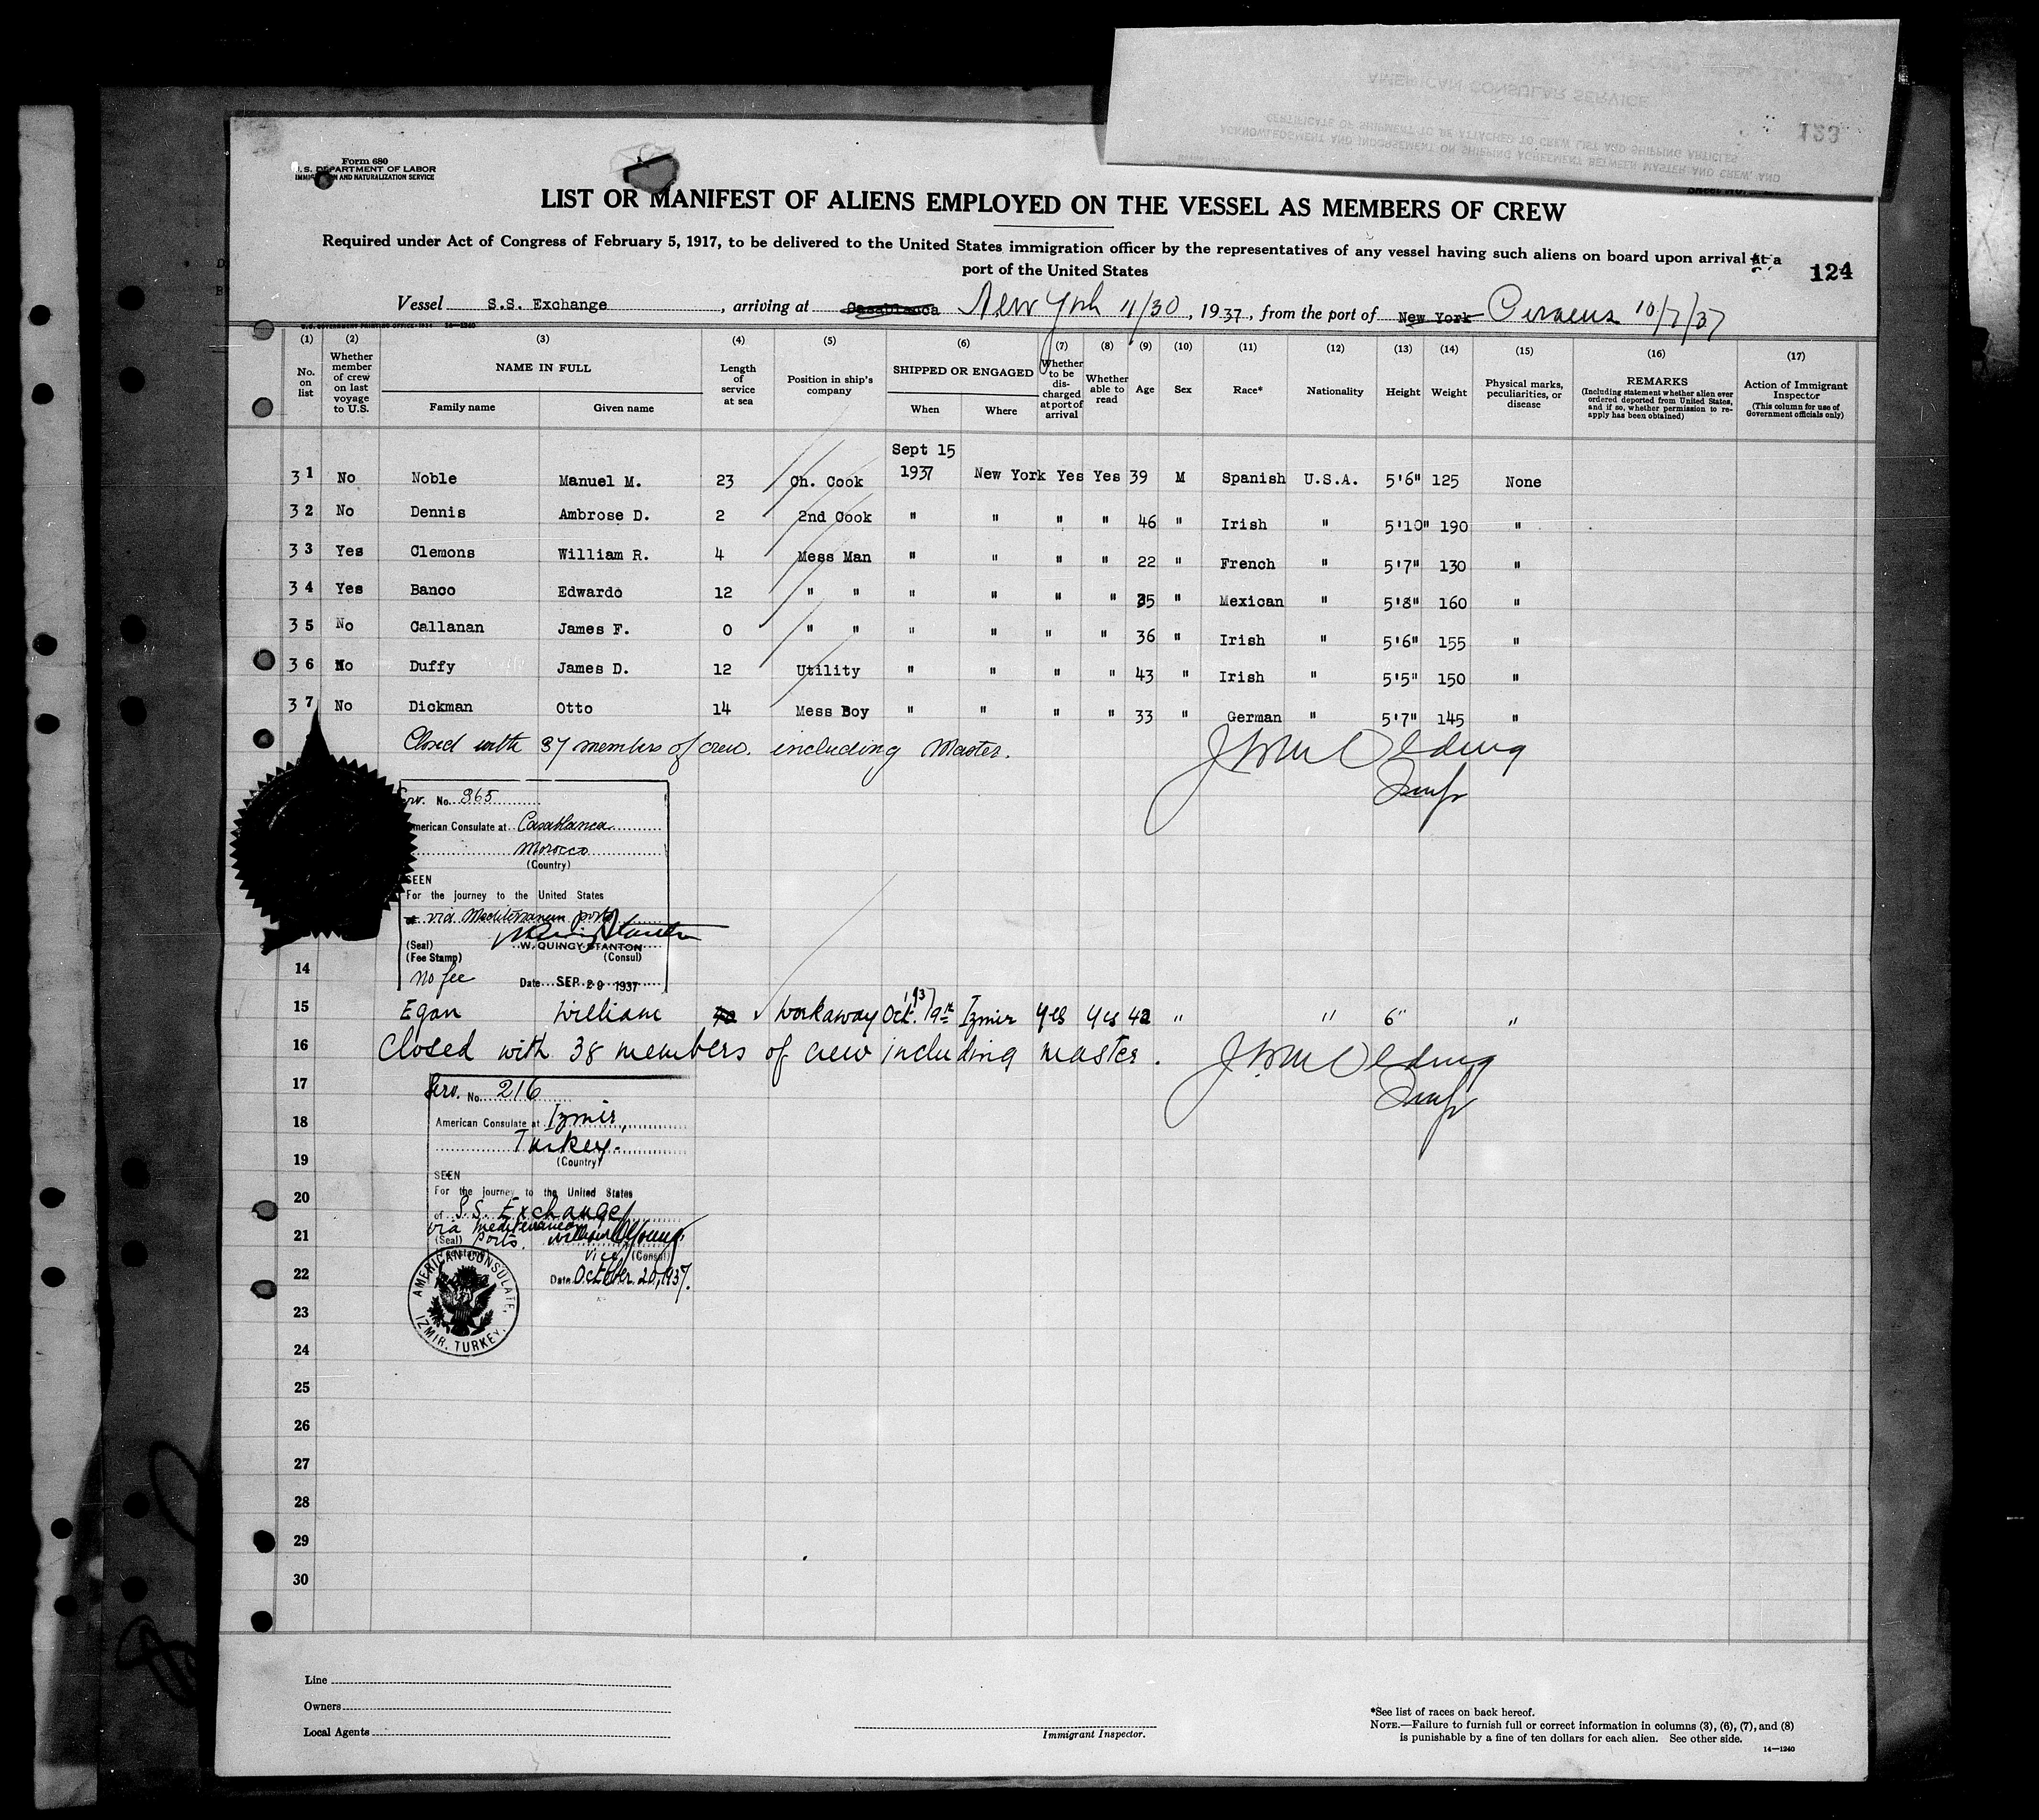 AMERICAN CONSULAR SERVICE
ACKNOWLEDGMENT AND INDORSEMENT ON SHIPPING AGREEMENT BETWEEN MASTER AND CREW, AND
CERTIFICATE OF SHIPMENT TO BE ATTACHED TO CREW LIST AND SHIPPING ARTICLES
123
Form 680
U.S. DEPARTMENT OF LABOR
IMMIGRATION AND NATURALIZATION SERVICE
LIST OR MANIFEST OF ALIENS EMPLOYED ON THE VESSEL AS MEMBERS OF CREW
Required under Act of Congress of February 5, 1917, to be delivered to the United States immigration officer by the representatives of any vessel having such aliens on board upon arrival at a
port of the United States
124
Vessel S.S. Exchange, arriving at Casablanca New York 11/30, 1937, from the port of New York Piraeus 10/7/37
U.S. GOVERNMENT PRINTING OFFICE: 1934 14-1240
(1) (2) (3) (4) (5) (6) (7) (8) (9) (10) (11) (12) (13) (14) (15) (16) (17)
No. on list
Whether member of crew on last voyage to U.S.
NAME IN FULL
Family name Given name
Length of service at sea
Position in ship's company
SHIPPED OR ENGAGED
When Where
Whether to be discharged at port of arrival
Whether able to read
Age Sex Race* Nationality Height Weight
Physical marks, peculiarities, or disease
REMARKS
(Including statement whether alien ever ordered deported from United States, and if so, whether permission to reapply has been obtained)
Action of Immigrant Inspector
(This column for use of Government officials only)
Sept 15
31 No Noble Manuel M. 23 Ch. Cook 1937 New York Yes Yes 39 M Spanish U.S.A. 5'6" 125 None
32 No Dennis Ambrose D. 2 2nd Cook " " " " 46 " Irish " 5'10" 190 "
33 Yes Clemons William R. 4 Mess Man " " " " 22 " French " 5'7" 130 "
34 Yes Banco Edwardo 12 " " " " " " 35 " Mexican " 5'8" 160 "
35 No Callanan James F. 0 " " " " " " 36 " Irish " 5'6" 155 "
36 No Duffy James D. 12 Utility " " " " 43 " Irish " 5'5" 150 "
37 No Dickman Otto 14 Mess Boy " " " " 33 " German " 5'7" 145 "
Closed with 37 members of crew. including Master.
Serv. No. 365
American Consulate at Casablanca
Morocco
(Country)
SEEN
For the journey to the United States
via Mediterranean ports
(Seal) W. QUINCY STANTON
(Fee Stamp) (Consul)
No fee Date SEP 29 1937
14
15 Egan William workaway Oct. 19th 1937 Izmir Yes Yes 42 " " 6" "
16 Closed with 38 members of crew including master.
17
Serv. No. 216
18
American Consulate at Izmir,
Turkey.
19
(Country)
SEEN
20
For the journey to the United States
of S.S. Exchange
via Mediterranean
21
(Seal) Ports.
Vice (Consul)
22
Date October 20, 1937.
AMERICAN CONSULATE, IZMIR, TURKEY.
23
24
25
26
27
28
29
30
Line
Owners
Local Agents
Immigrant Inspector.
*See list of races on back hereof.
NOTE.—Failure to furnish full or correct information in columns (3), (6), (7), and (8)
is punishable by a fine of ten dollars for each alien. See other side.
14—1240